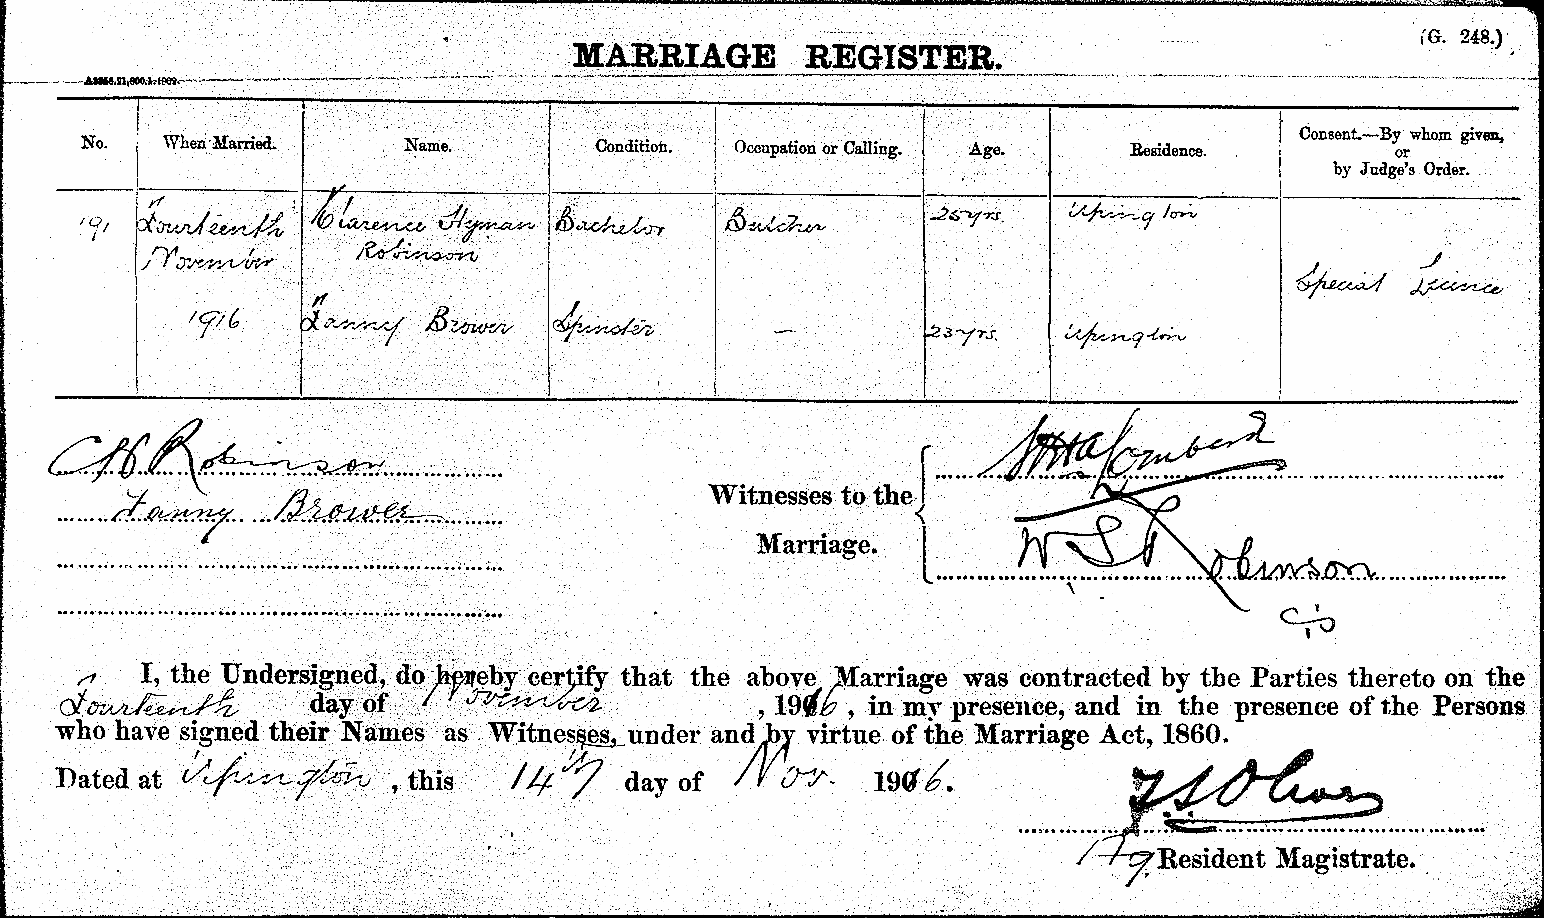 (G. 248.)
MARRIAGE REGISTER.
No. When Married. Name. Condition. Occupation or Calling. Age. Residence. Consent.—By whom given, or by Judge's Order.
191 Fourteenth Clarence Hyman Bachelor Butcher 25 yrs. Upington
November Robinson
Special Licence
1916 Fanny Brower Spinster — 23 yrs. Upington
C H Robinson
Lombard
Fanny Brower
Witnesses to the
Marriage.
W S Robinson
I, the Undersigned, do hereby certify that the above Marriage was contracted by the Parties thereto on the
Fourteenth day of November, 1916, in my presence, and in the presence of the Persons
who have signed their Names as Witnesses, under and by virtue of the Marriage Act, 1860.
Dated at Upington, this 14th day of Nov. 1916.
Ag Resident Magistrate.